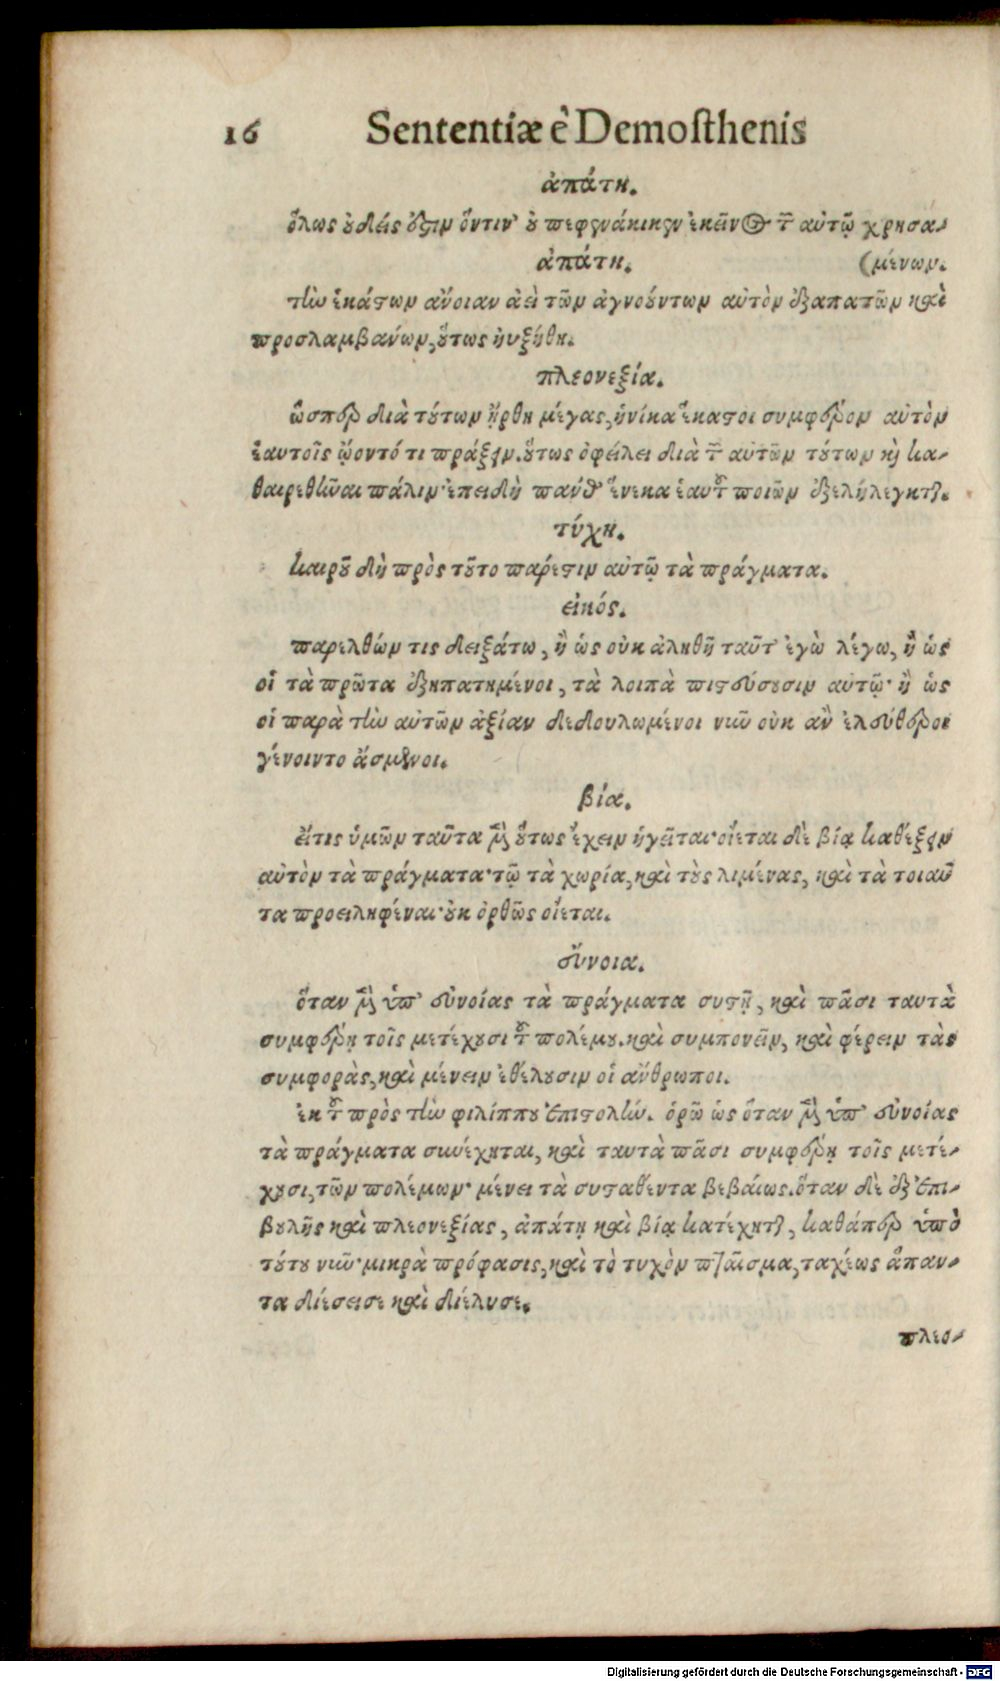 16 Sententiæ è Demosthenis
ἀπάτη.
ὅλως οὐδείς ἐστιν ὅντιν' οὐ πεφενάκικεν ἐκεῖνος τῶν αὐτῷ χρησα-
ἀπάτη. (μένων.
τὴν ἑκάστων ἄνοιαν ἀεὶ τῶν ἀγνοούντων αὐτὸν ἐξαπατῶν καὶ
προσλαμβανων, οὕτως ηυξήθη.
πλεονεξία.
ὥσπερ διὰ τούτων ἤρθη μέγας, ἡνίκα ἕκαστοι συμφέρον αὐτὸν
ἑαυτοῖς ᾤοντό τι πράξειν. οὕτως ὀφείλει διὰ τῶν αὐτῶν τούτων καὶ κα-
θαιρεθῆναι πάλιν· ἐπειδὴ πάνθ' ἕνεκα ἑαυτοῦ ποιῶν ἐξελήλεγκται.
τύχη.
καιροῦ δὴ πρὸς τοῦτο πάρεστιν αὐτῷ τὰ πράγματα.
εἰκός.
παρελθών τις δειξάτω, ἢ ὡς οὐκ ἀληθῆ ταῦτ' ἐγὼ λέγω, ἢ ὡς
οἱ τὰ πρῶτα ἐξηπατημένοι, τὰ λοιπὰ πιστεύσουσιν αὐτῷ· ἢ ὡς
οἱ παρὰ τὴν αὐτῶν ἀξίαν δεδουλωμένοι νῦν οὐκ ἂν ἐλεύθεροι
γένοιντο ἄσμενοι.
βία.
εἴτις ὑμῶν ταῦτα μὲν οὕτως ἔχειν ἡγεῖται· οἴεται δὲ βίᾳ καθέξειν
αὐτὸν τὰ πράγματα· τῷ τὰ χωρία, καὶ τοὺς λιμένας, καὶ τὰ τοιαῦ
τα προειληφέναι· οὐκ ὀρθῶς οἴεται.
εὔνοια.
ὅταν μὲν ὑπ' εὐνοίας τὰ πράγματα συστῇ, καὶ πᾶσι ταυτὰ
συμφέρῃ τοῖς μετέχουσι τοῦ πολέμου. καὶ συμπονεῖν, καὶ φέρειν τὰς
συμφορὰς, καὶ μένειν ἐθέλουσιν οἱ ἄνθρωποι.
ἐκ τοῦ πρὸς τὴν φιλίππου ἐπιστολήν. ὁρῶ ὡς ὅταν μὲν ὑπ' εὐνοίας
τὰ πράγματα συνέχηται, καὶ ταυτὰ πᾶσι συμφέρῃ τοῖς μετέ-
χουσι, τῶν πολέμων· μένει τὰ συσταθέντα βεβαίως. ὅταν δὲ ἐξ ἐπι-
βουλῆς καὶ πλεονεξίας, ἀπάτῃ καὶ βίᾳ κατέχηται, καθάπερ ὑπὸ
τούτου νῦν· μικρὰ πρόφασις, καὶ τὸ τυχὸν πταῖσμα, ταχέως ἅπαν-
τα διέσεισε καὶ διέλυσε.
πλεο-
Digitalisierung gefördert durch die Deutsche Forschungsgemeinschaft - DFG